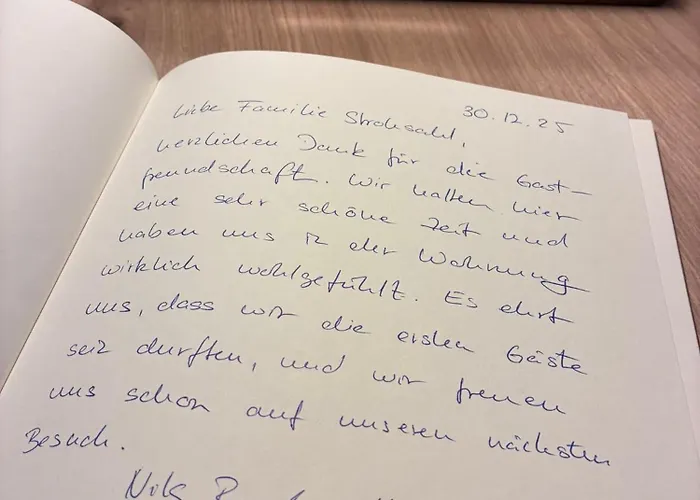 30.12.25
Liebe Familie Strohsahl,
herzlichen Dank für die Gast-
freundschaft. Wir hatten hier
eine sehr schöne Zeit und
haben uns in der Wohnung
wirklich wohlgefühlt. Es ehrt
uns, dass wir die ersten Gäste
sein durften, und wir freuen
uns schon auf unseren nächsten
Besuch.